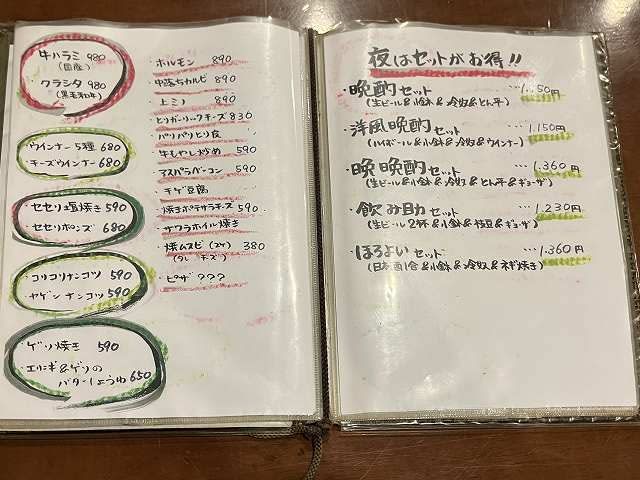 牛ハラミ 980
(国産)
クラシタ 980
(黒毛和牛)
ウインナー 5種 680
チーズウインナー 680
セセリ塩焼き 590
セセリポンズ 680
コリコリナンコツ 590
ヤゲンナンコツ 590
・ゲソ焼き 590
・エリンギ&ゲソの
バターしょうゆ 650
・ホルモン 890
・中落ちカルビ 890
・上ミノ 890
・とりガーリックチーズ 830
・パリパリとり皮
・牛もやし炒め 590
・アスパラベーコン 590
・チゲ豆腐
・焼きポテサラチーズ 590
・サワラホイル焼き
・焼ムスビ 380
・ピザ ???
夜はセットがお得!!
・晩酌セット …1.150円
(生ビール&小鉢&冷奴&とん平)
・洋風晩酌セット …1.150円
(ハイボール&小鉢&冷奴&ウインナー)
・晩晩酌セット …1.360円
(生ビール&小鉢&冷奴&とん平&ギョーザ)
・飲み助セット …1.230円
(生ビール2杯&小鉢&枝豆&ギョーザ)
・ほろよいセット …1.360円
(日本酒1合&小鉢&冷奴&ネギ焼き)